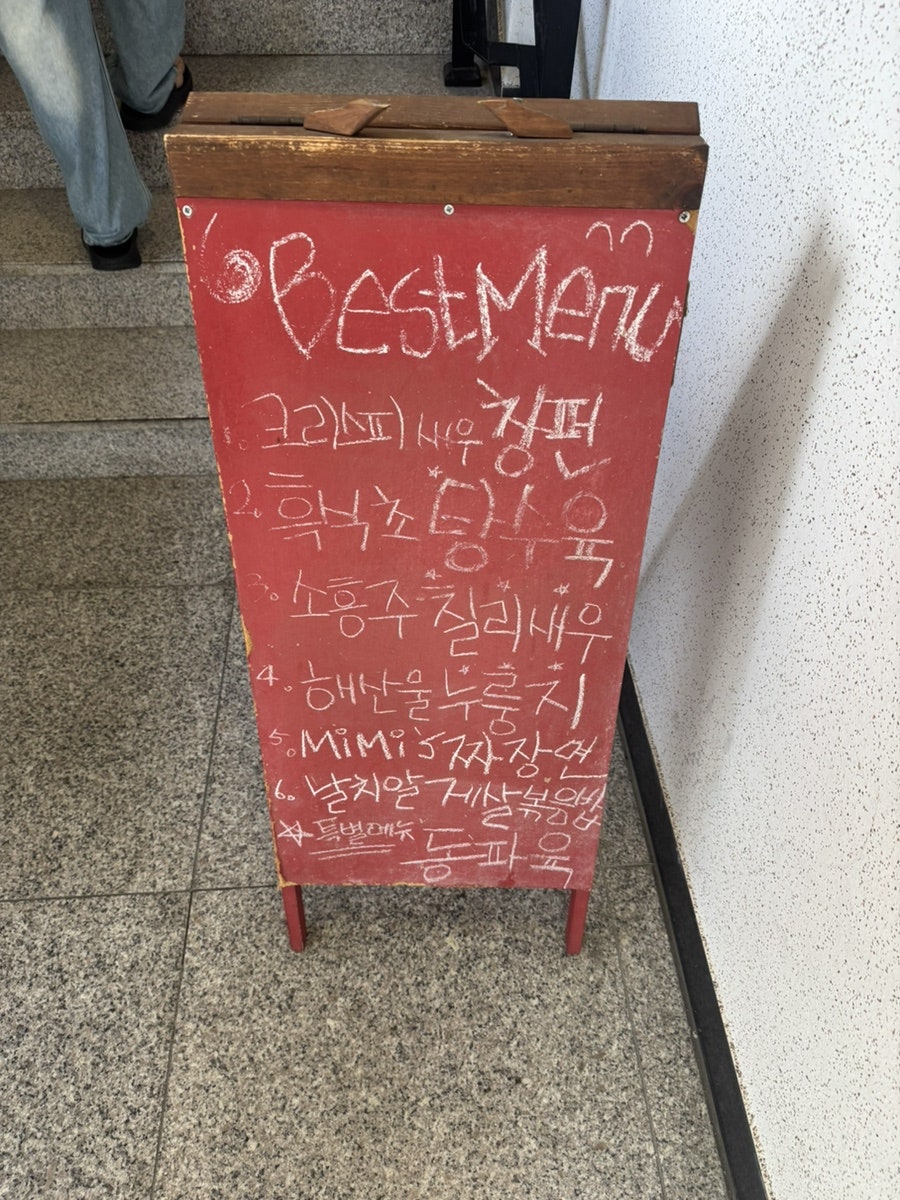 Best Menu
1. 크리스피 새우 창펀
2. 흑식초 탕수육
3. 소흥주 칠리새우
4. 해산물 누룽지
5. MiMi's 짜장면
6. 날치알 게살볶음밥
☆ 특별메뉴 동파육